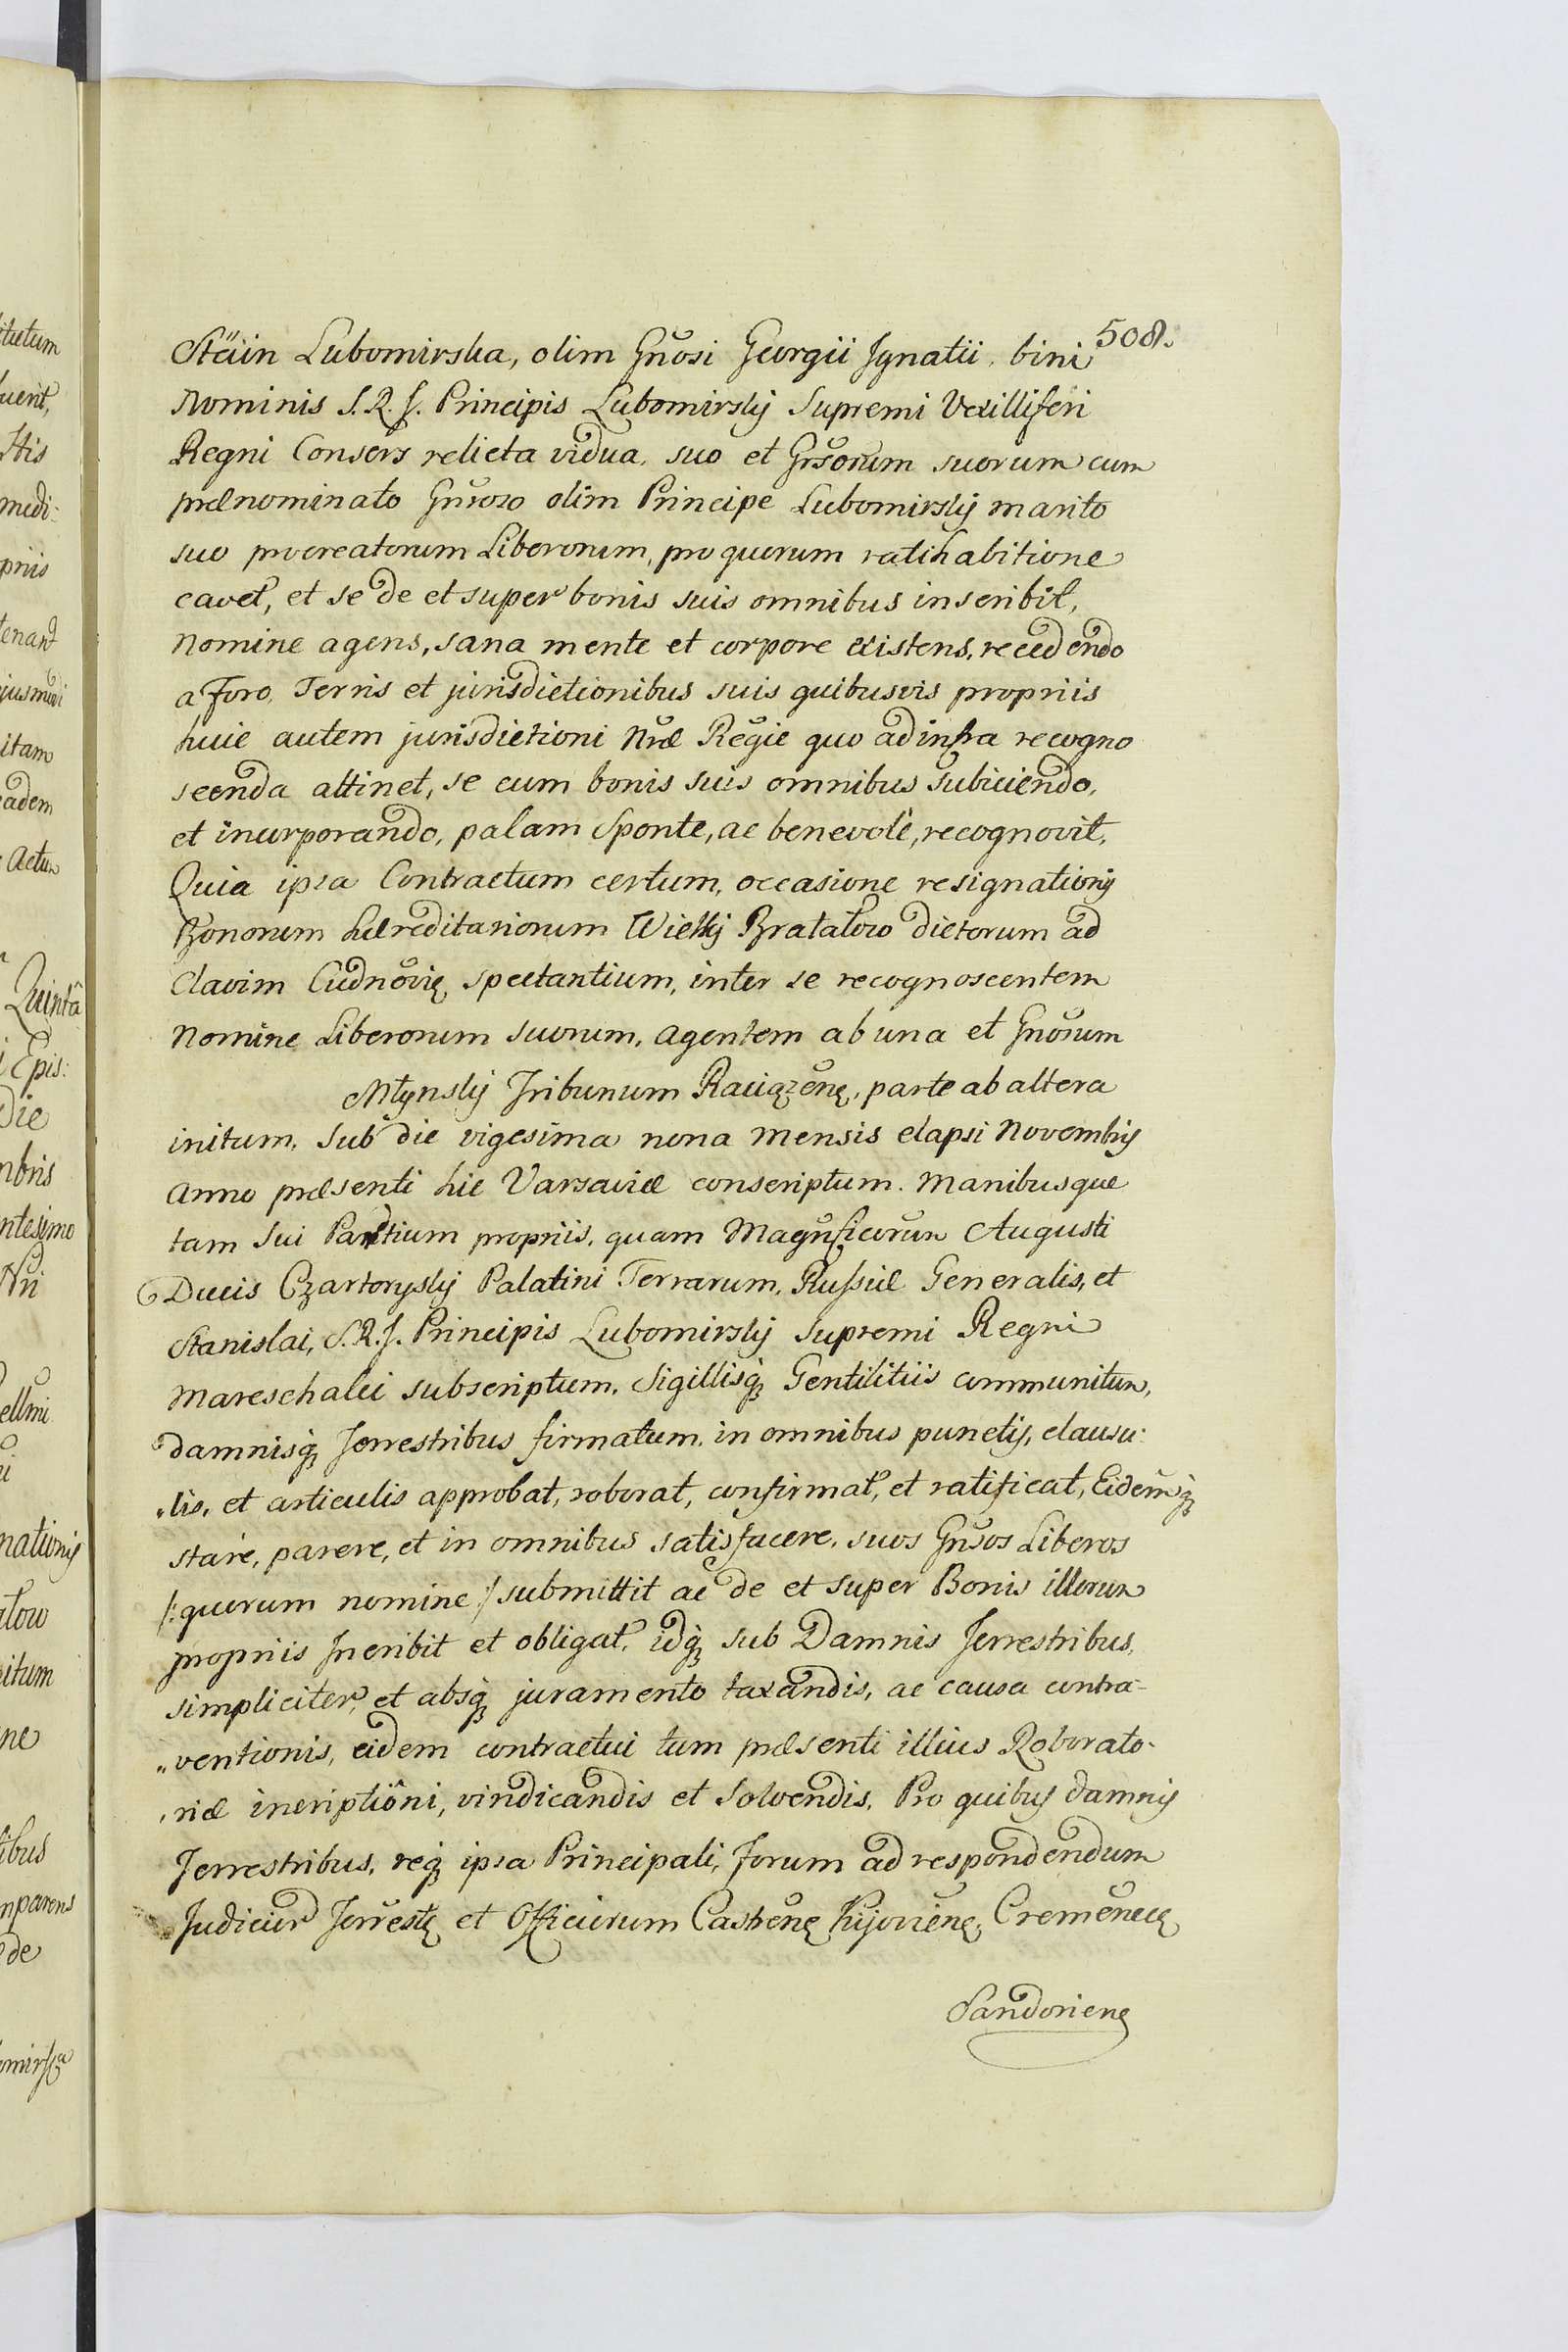 508.
Stäin Lubomirska, olim Gnosi Georgii Ignatii, bini
Nominis S. R. I. Principis Lubomirskij Supremi Vexilliferi
Regni Consors relicta vidua, suo et Grsorum suorum cum
prænominato Gnroso olim Principe Lubomirskij marito
suo procreatorum Liberorum, pro quorum ratihabitione
cavet, et se de et super bonis suis omnibus inscribit,
Nomine agens, sana mente et corpore existens, recedendo
a foro, Terris et jurisdictionibus suis quibusvis propriis
huic autem jurisdictioni Nræ Regie quo ad infra recogno
scenda attinet, se cum bonis suis omnibus subiciendo,
et incorporando, palam Sponte, ac benevolè, recognovit,
Quia ipsa Contractum certum, occasione resignationis
Bonorum hæreditariorum Wielkij Bratalow dictorum ad
Clavim Cudnovię spectantium, inter se recognoscentem
Nomine Liberorum suorum, agentem ab una et Gnosum
Młynskij Tribunum parte ab altera
initum, Sub die vigesima nona mensis elapsi Novembris
Anno præsenti hic Varsaviæ conscriptum. Manibusque
tam Sui Partium propriis, quam Magnificorum Augusti
Ducis Czartoryskij Palatini Terrarum, Russiæ Generalis, et
Stanislai, S. R. I. Principis Lubomirskij Supremi Regni
Mareschalci subscriptum, Sigillisq3 Gentilitiis communitum,
damnisq3 Terrestribus firmatum, in omnibus punctis, clausu:
lis, et articulis approbat, roborat, confirmat, et ratificat, Eidemq3
stare, parere, et in omnibus satisfacere, suos Gnsos Liberos
/: quorum nomine :/ submittit ac de et super Bonis illorum
propriis Incribit et obligat, idq3 sub Damnis Terrestribus,
simpliciter, et absq3 juramento taxandis, ac causa contra-
"ventionis, eidem contractui tum præsenti illius Roborato-
riæ incriptiôni, vindicandis et Solvendis. Pro quibus damnis
Terrestribus, req3 ipsa Principali, forum ad respondendum
Judicior Terrestę et Officiorum Castrenę Kijovienę, Cremenecę
Sandorienę